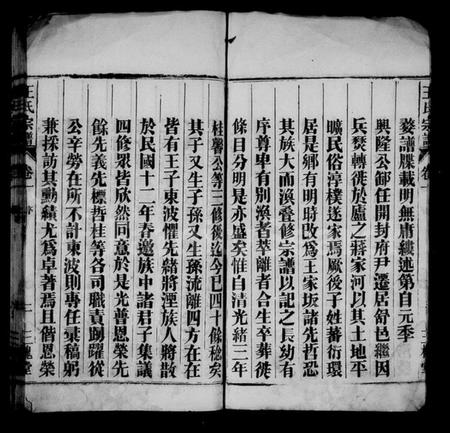 婺譜牒載明無庸縷述第自元季
興隆公卸任開封府尹遷居舒邑繼因
兵燹轉徙於廬之蔣家河以其土地平
曠民俗淳樸遂家焉厥後子姓蕃衍環
居是鄉有明時改為王家坂諸先哲恐
其族大而渙疊修宗譜以記之長幼有
序尊卑有別渙者萃離者合生卒葬徙
條目分明是亦盛矣惟自清光緒三年
桂馨公等三修後迄今已四十餘稔矣
其子又生子孫又生孫流離四方在在
皆有王子東波懼先緒將湮族人將散
於民國十二年春邀族中諸君子集議
四修眾皆欣然同意於是光普恩榮先
餘先義先標哲桂等各司職責踴躍從
公辛勞在所不計東波則專任彙稿躬
兼採訪其勳績尤為卓著焉且偕恩榮
王氏宗譜
卷一
王氏宗譜
卷一
三槐堂
三槐堂